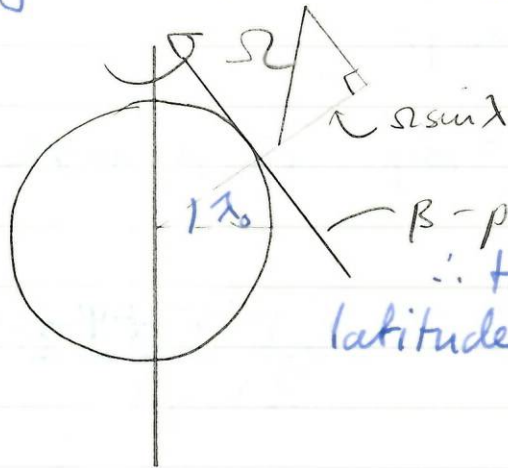 Ω
Ω sin λ
λ₀
β - p
∴ t
latitude